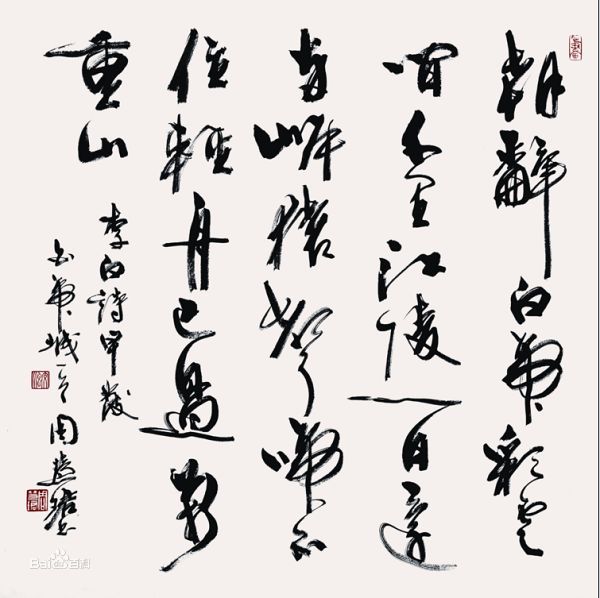 朝辭白帝彩雲
间千里江陵一日還
两岸猿聲啼不
住輕舟已過萬
重山
李白詩早發
白帝城一首 周
Bai百科